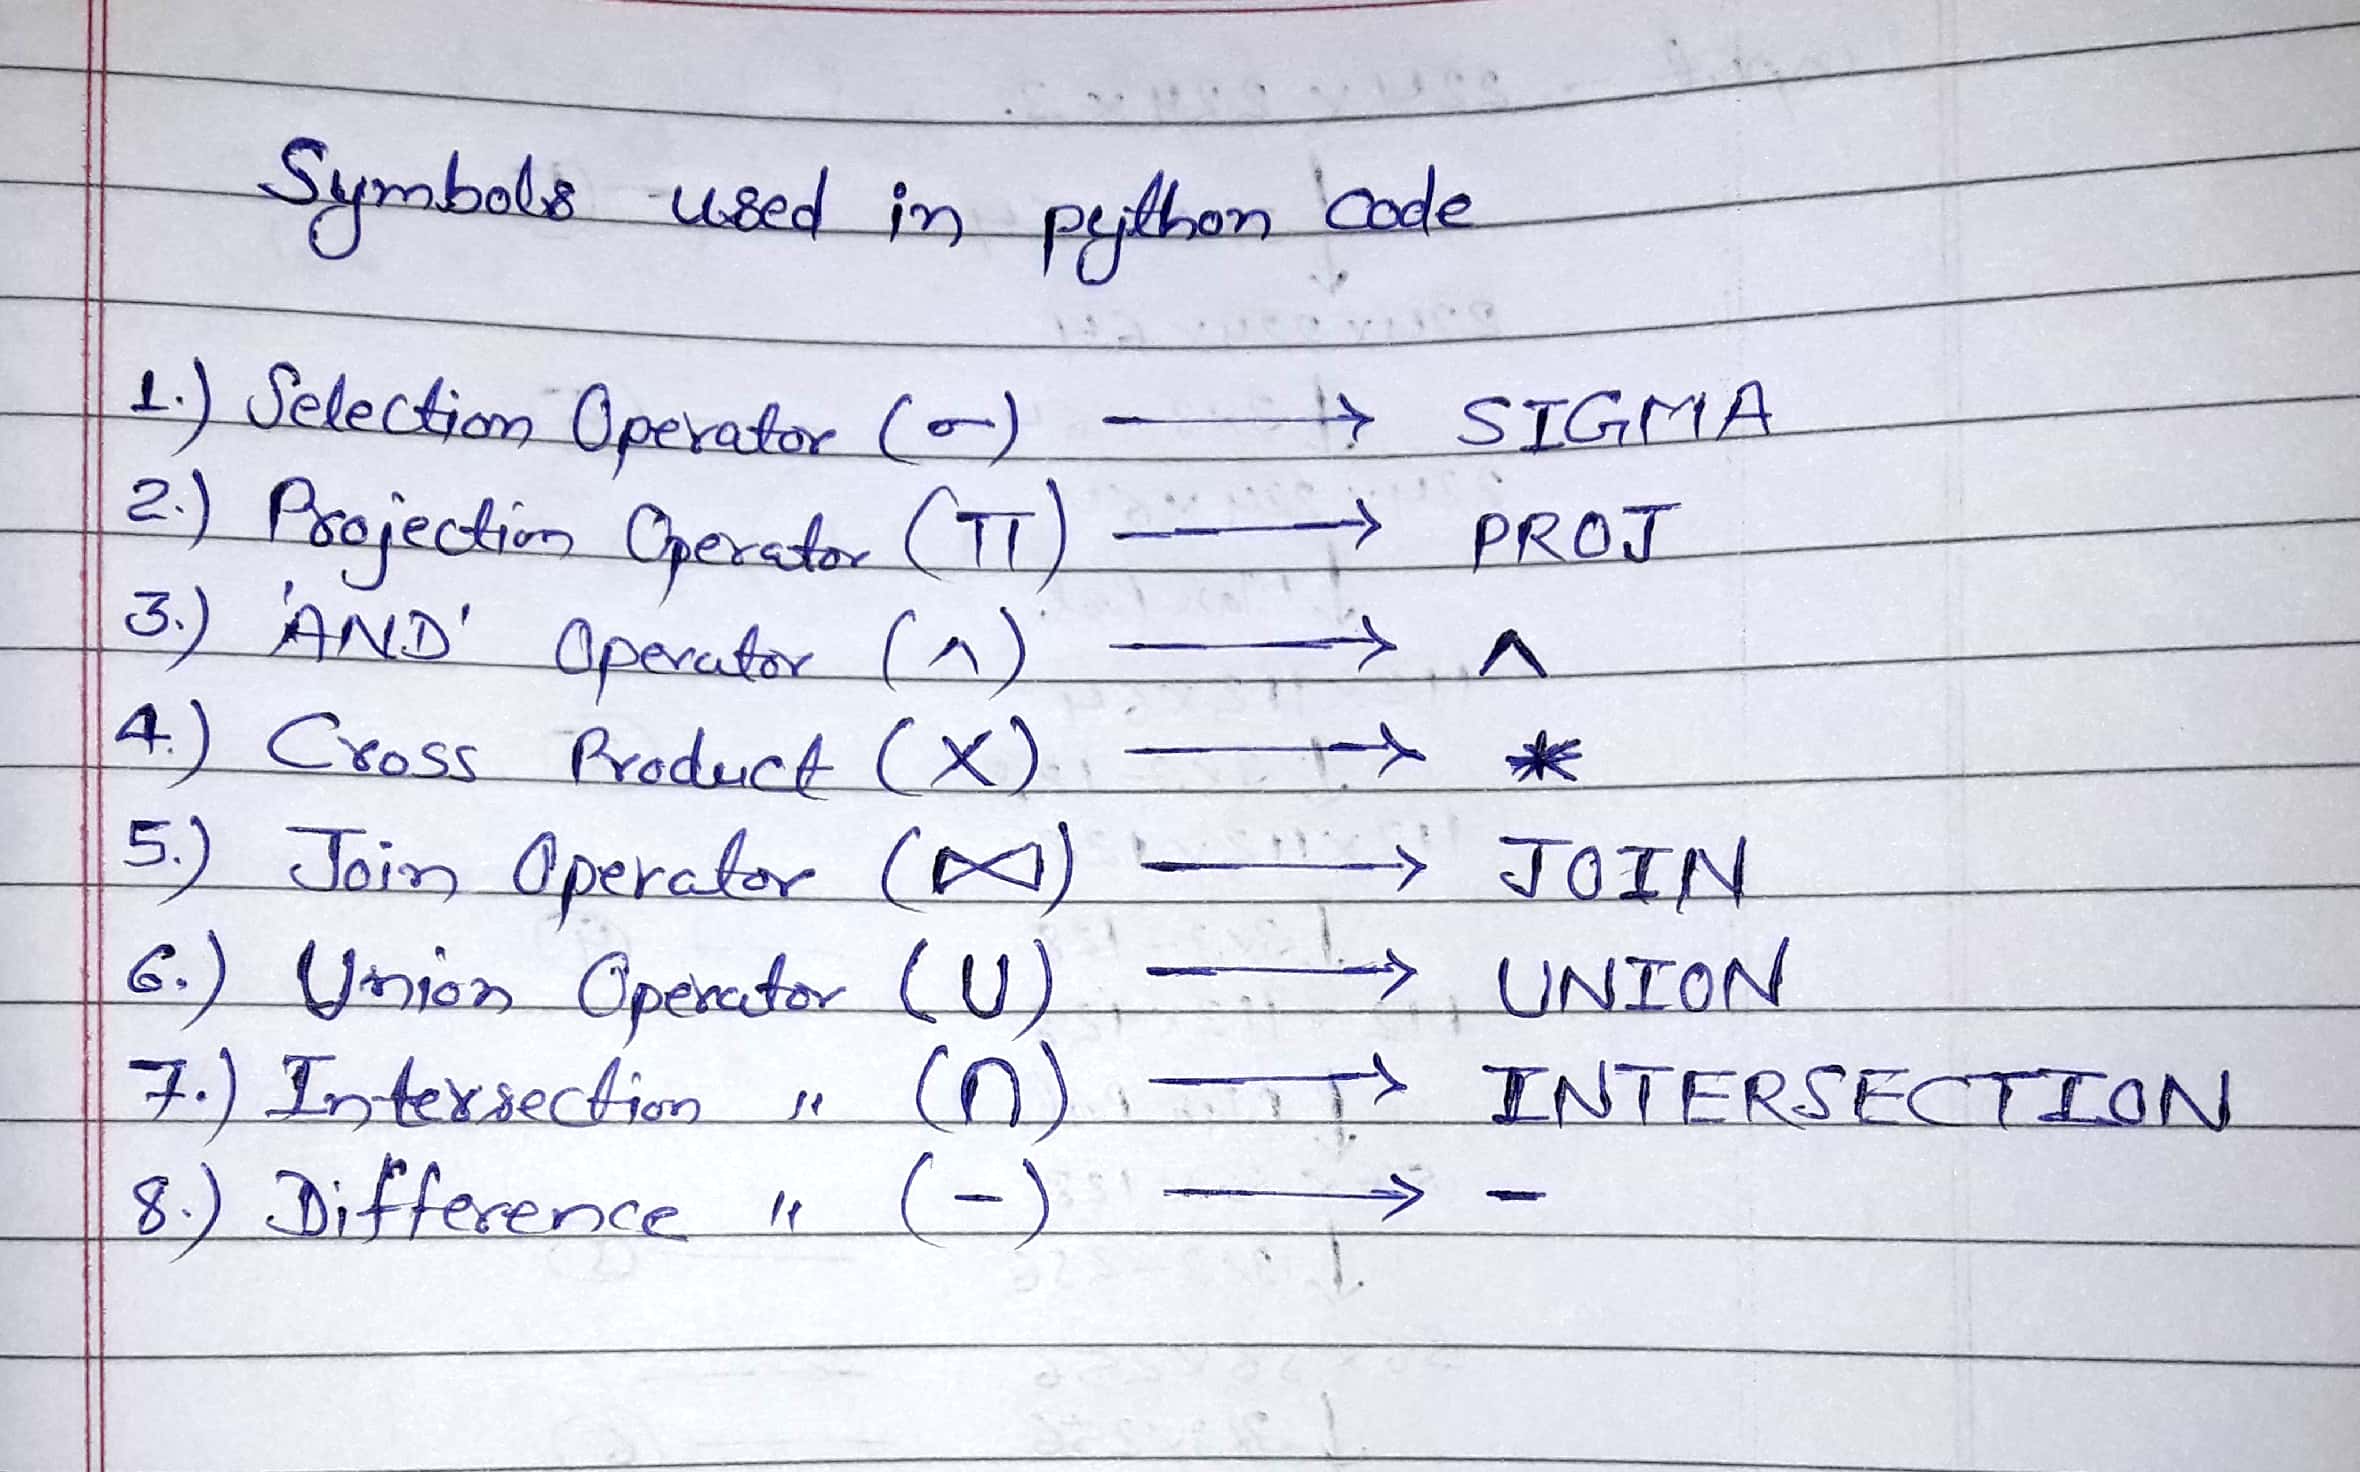 Symbols used in python code
1.) Selection Operator (σ) → SIGMA
2.) Projection Operator (π) → PROJ
3.) 'AND' Operator (^) → ^
4.) Cross Product (X) → *
5.) Join Operator (⋈) → JOIN
6.) Union Operator (U) → UNION
7.) Intersection " (∩) → INTERSECTION
8.) Difference " (-) → -